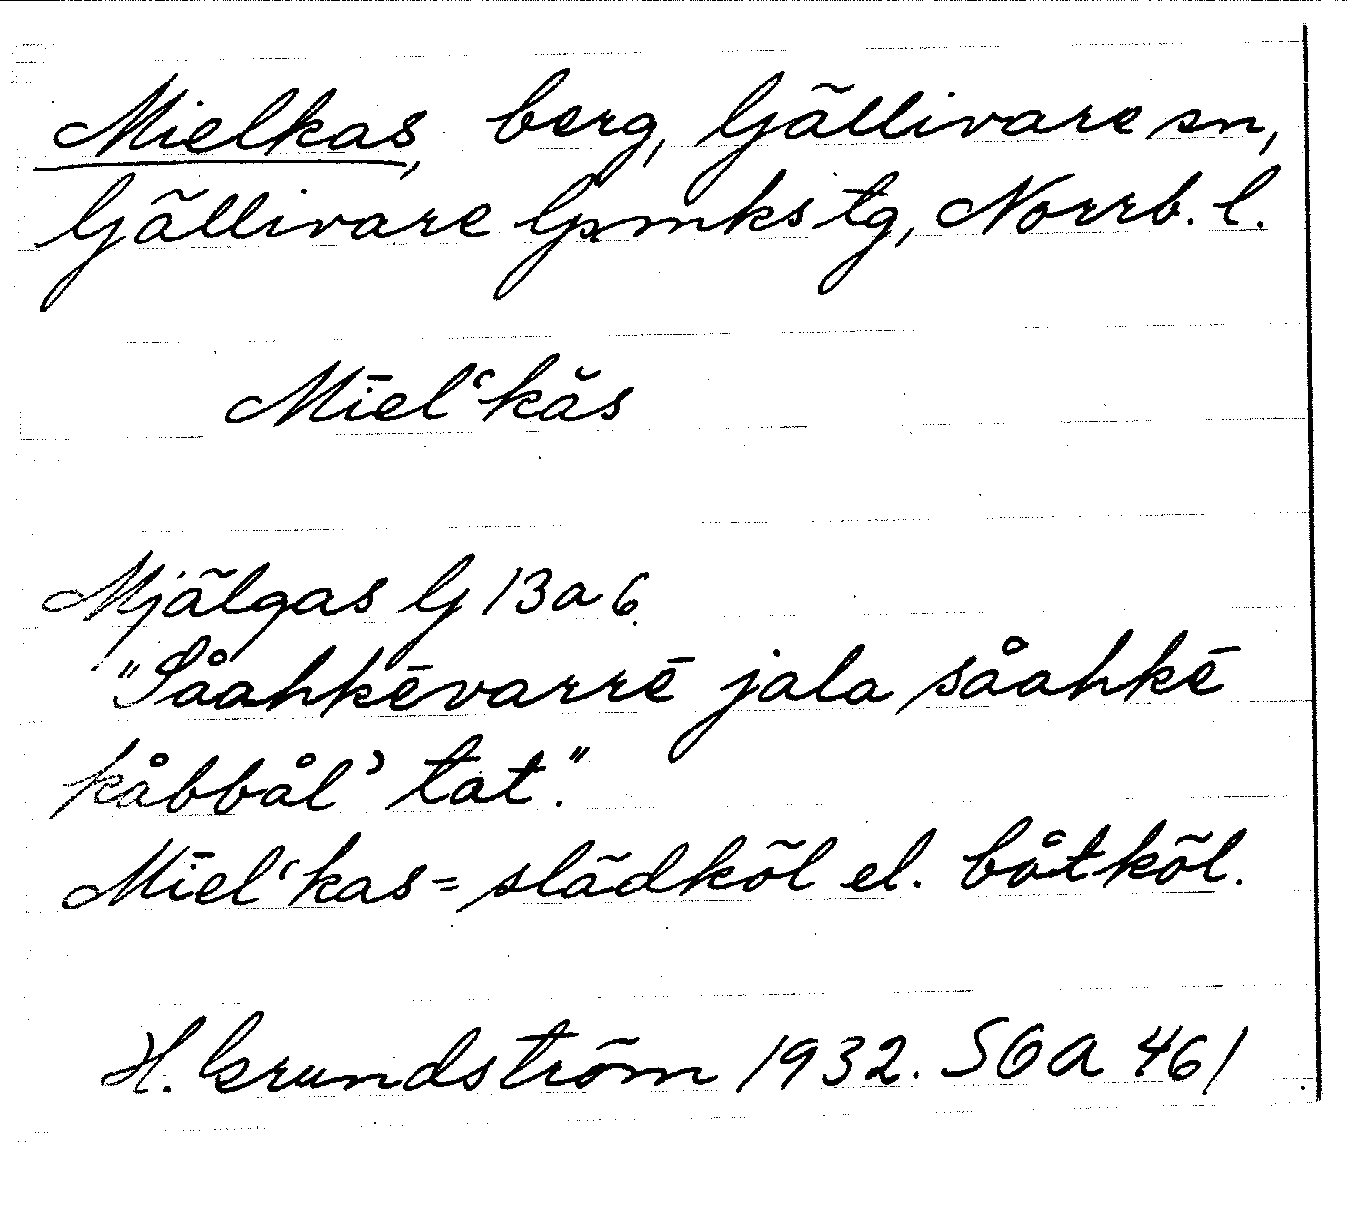 Mielkas, berg, Gällivare sn,
Gällivare lpmks tg, Norrb. l.
Mīel‘kăs
Mjälgas G 13 a 6.
"Såahkēvarrē jala såahkē
kåbbål’ tat."
Mīel‘kas = slädköl el. båtköl.
H. Grundström 1932. SOA 461